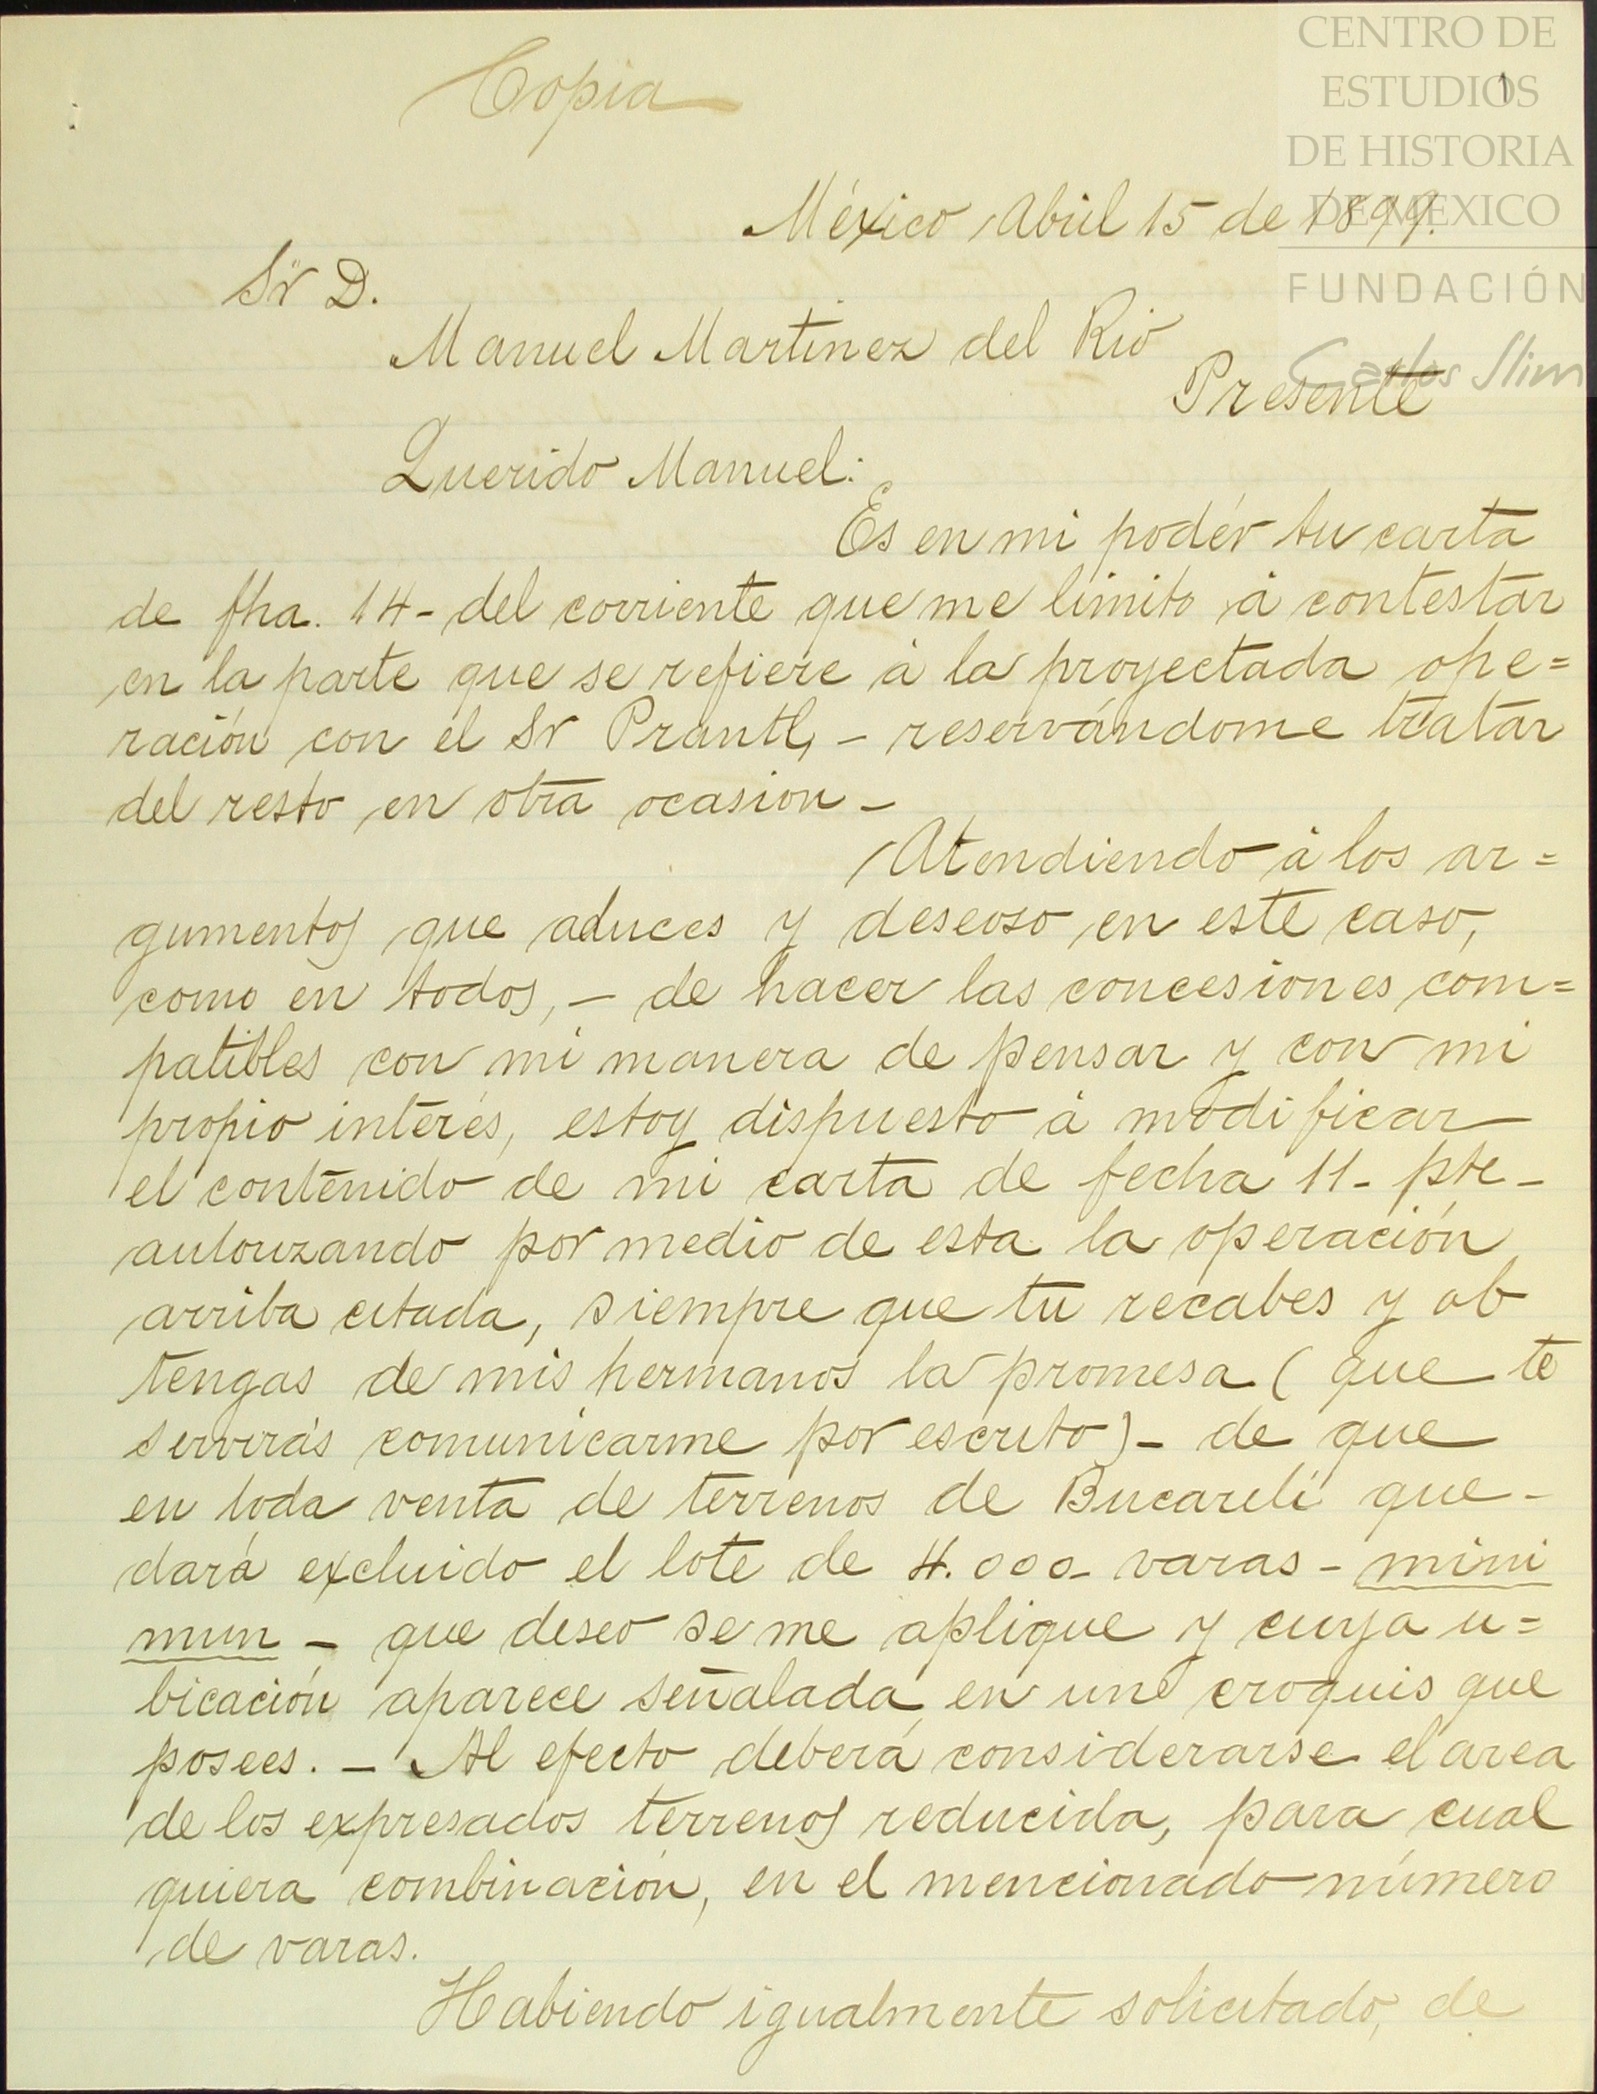 CENTRO DE
ESTUDIOS
DE HISTORIA
DE MEXICO
FUNDACIÓN
Carlos Slim
1
Copia
México Abril 15 de 1899.
Sr D.
Manuel Martinez del Rio
Presente
Querido Manuel:
Es en mi podér tu carta
de fha. 14- del corriente que me limito á contestar
en la parte que se refiere á la proyectada ope=
ración con el Sr Prantl, - reservándome tratar
del resto en otra ocasion -
Atendiendo á los ar=
gumentos que aduces y deseoso en este caso,
como en todos, - de hacer las concesiones com=
patibles con mi manera de pensar y con mi
propio interés, estoy dispuesto á modificar
el contenido de mi carta de fecha 11- pte -
autorizando por medio de esta la operación
arriba citada, siempre que tu recabes y ob
tengas de mis hermanos la promesa (que te
servirás comunicarme por escrito) - de que
en toda venta de terrenos de Bucareli que-
dará excluido el lote de 4.000- varas - mini
mun - que deseo se me aplique y cuya u=
bicación aparece señalada en un croquis que
posees. - Al efecto deberá considerarse el area
de los expresados terrenos reducida, para cual
quiera combinación, en el mencionado número
de varas.
Habiendo igualmente solicitado, de